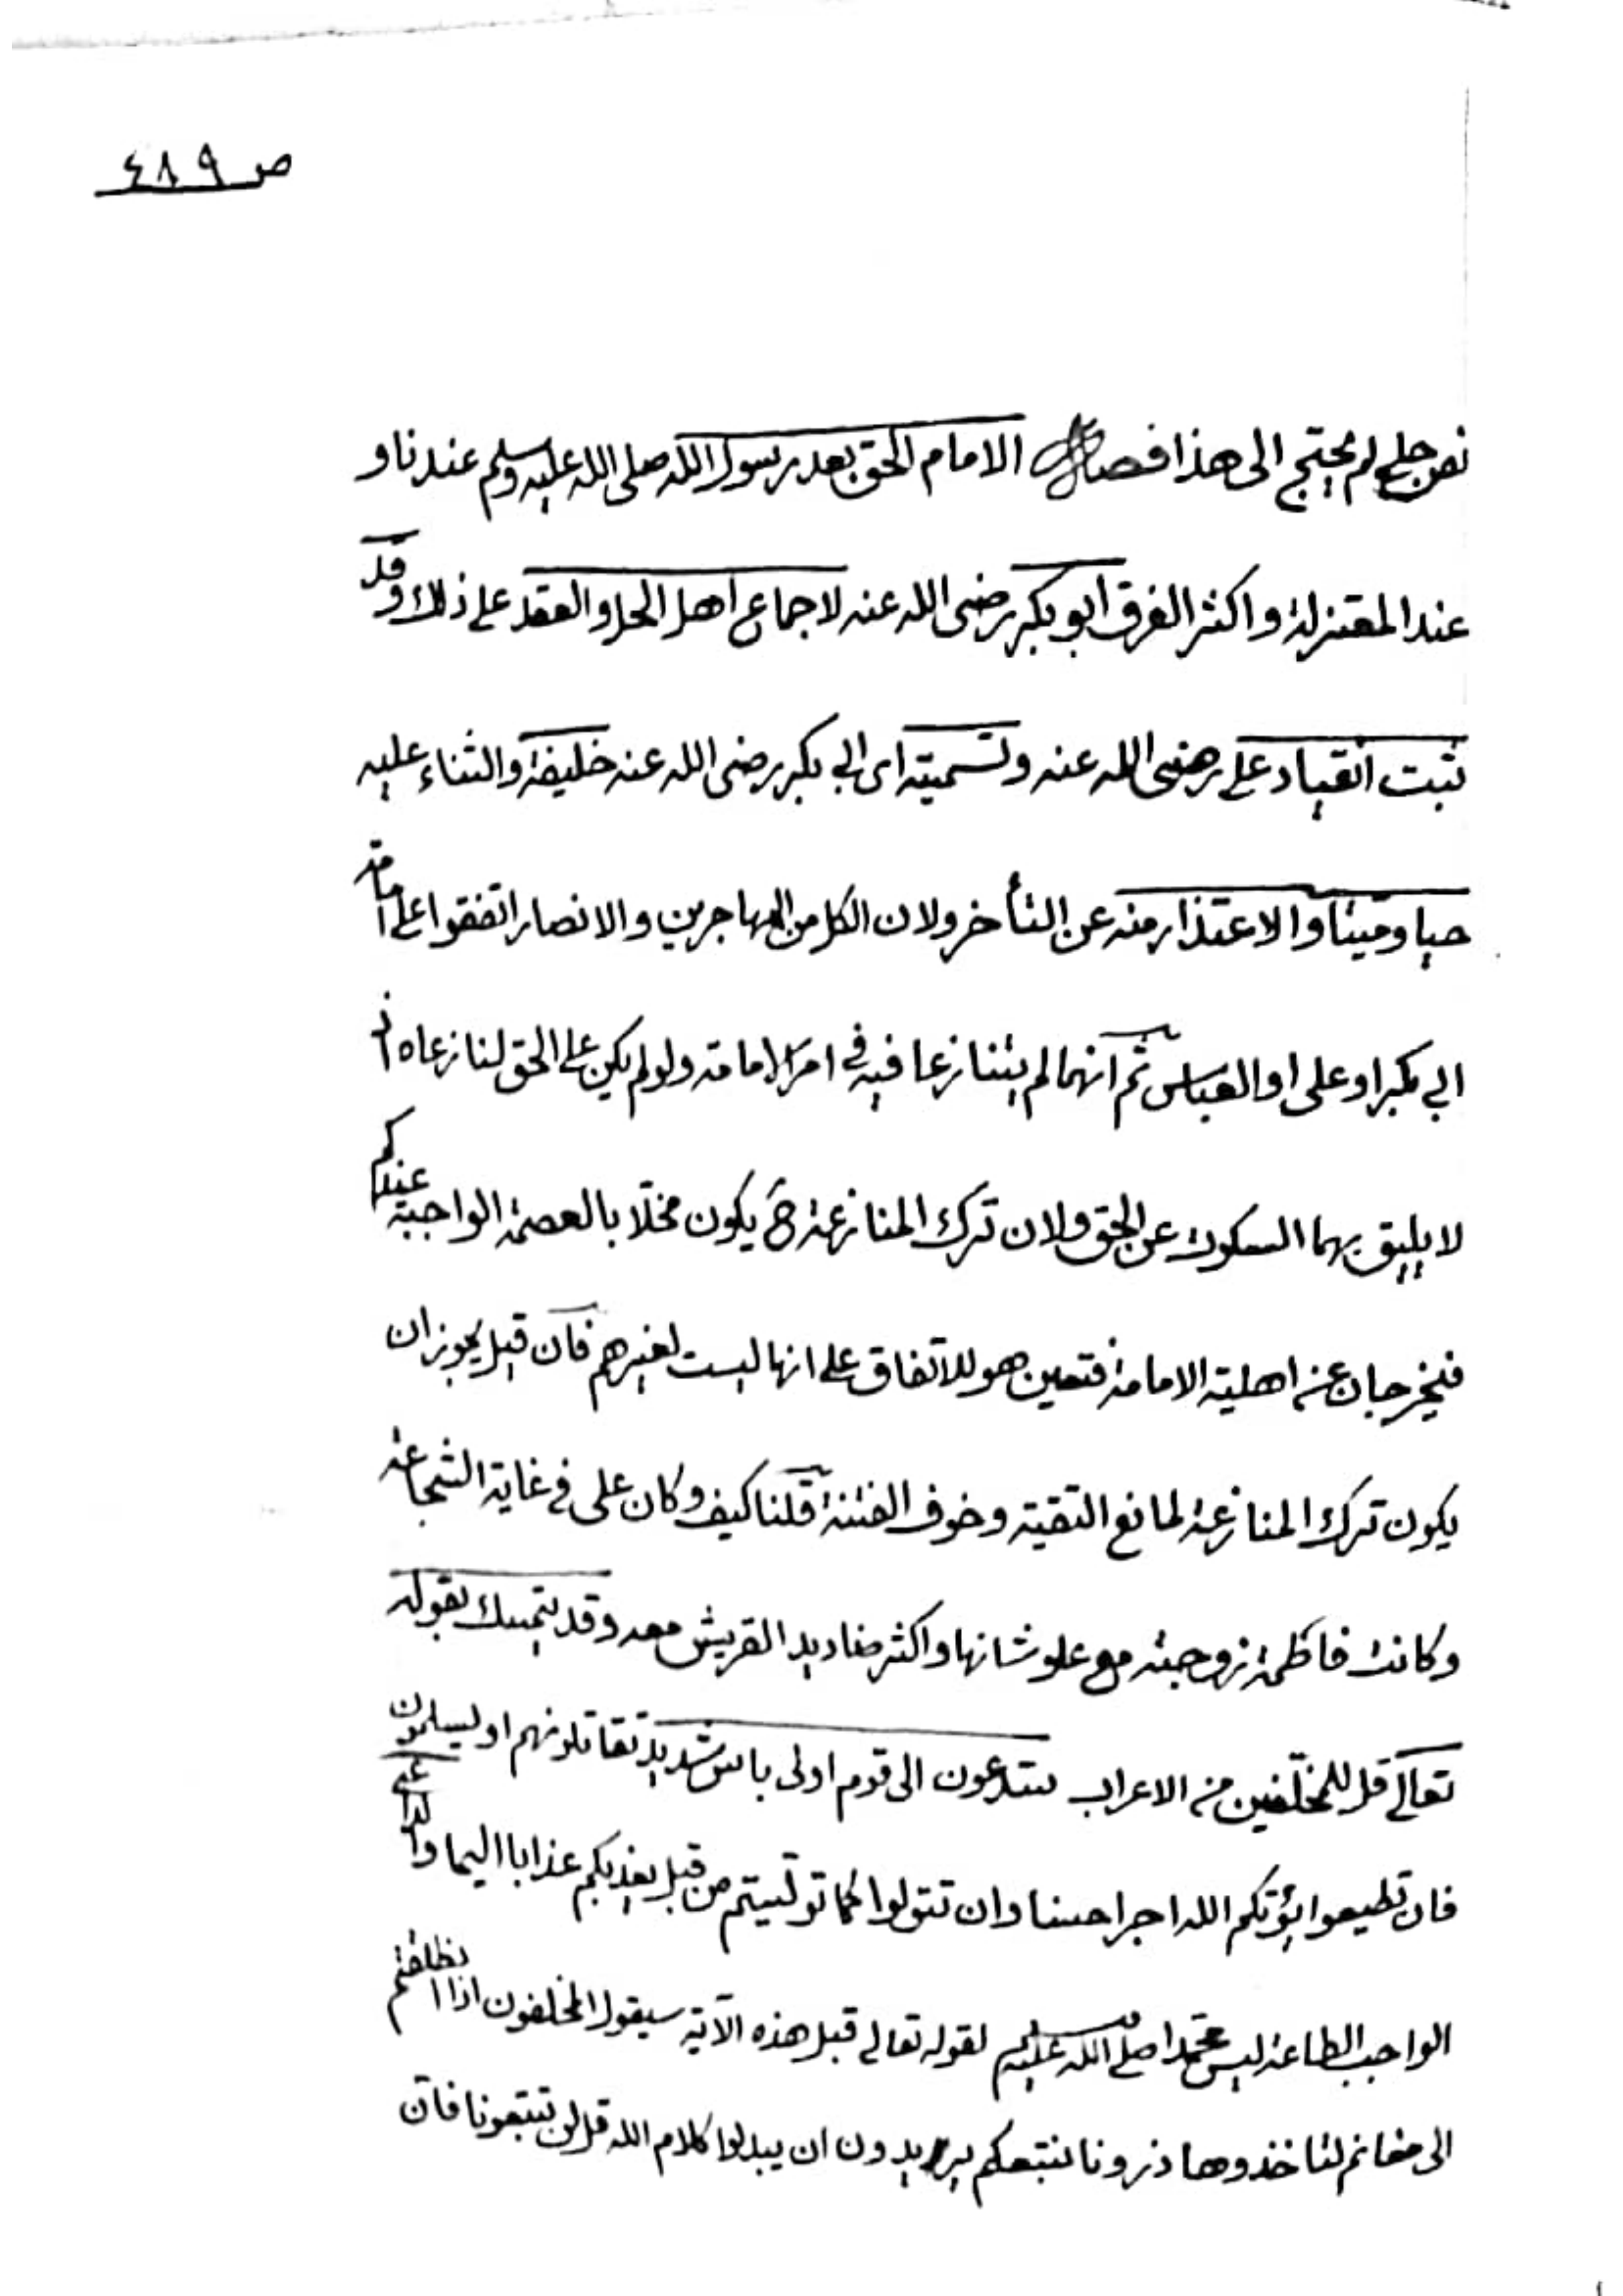 ص ٤٨٩
نص جلي لم يحتج الى هذا فصل الامام الحق بعد رسول الله صلى الله عليه وسلم عندنا و
عند المعتزلة و اكثر الفرق ابو بكر رضى الله عنه لاجماع اهل الحل والعقد على ذلك وقد
ثبت انقياد على رضى الله عنه وتسميته اى ابي بكر رضى الله عنه خليفة والثناء عليه
حيا وميتا والاعتذار منه عن التأخر ولان الكل من المهاجرين والانصار اتفقوا على امامة
ابي بكر او على او العباس ثم انهما لم يتنازعا فيه في امر الامامة ولو لم يكن على الحق لنازعاه اذ
لا يليق بهما السكوت عن الحق ولان ترك المنازعة ح يكون مخلّا بالعصمة الواجبة عندكم
فيخرجان عن اهلية الامامة فتعين هو للاتفاق على انها ليست لغيرهم فان قيل يجوز ان
يكون ترك المنازعة لمانع التقية وخوف الفتنة قلنا كيف وكان على في غاية الشجاعة
وكانت فاطمة زوجته مع علو شانها واكثر صناديد القريش معه وقد يتمسك بقوله
تعالى قل للمخلّفين من الاعراب ستدعون الى قوم اولى باس شديد تقاتلونهم او يسلمون
فان تطيعوا يؤتكم الله اجرا حسنا وان تتولوا كما تولّيتم من قبل يعذبكم عذابا اليما والداعى
الواجب الطاعة ليس محمّدا صلى الله عليه وسلم لقوله تعالى قبل هذه الآية سيقول المخلفون اذا انطلقتم
الى مغانم لتاخذوها ذرونا نتبعكم يريدون ان يبدلوا كلام الله قل لن تتبعونا فان